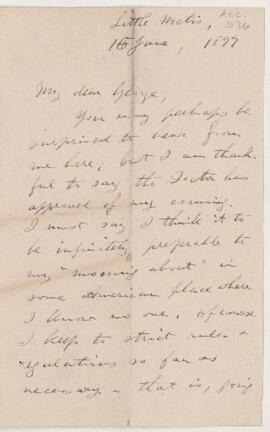 Little Metis, Acc.
16 June, 1899 576
My dear George,
You may perhaps be
surprised to hear from
me here; but I am thank-
ful to say the Doctor has
approved of my coming.
I must say I think it to
be infinitely preferable to
my "mooning about" in
some American place where
I know no one. Of course
I keep to strict rules &
regulations so far as
necessary - that is, going